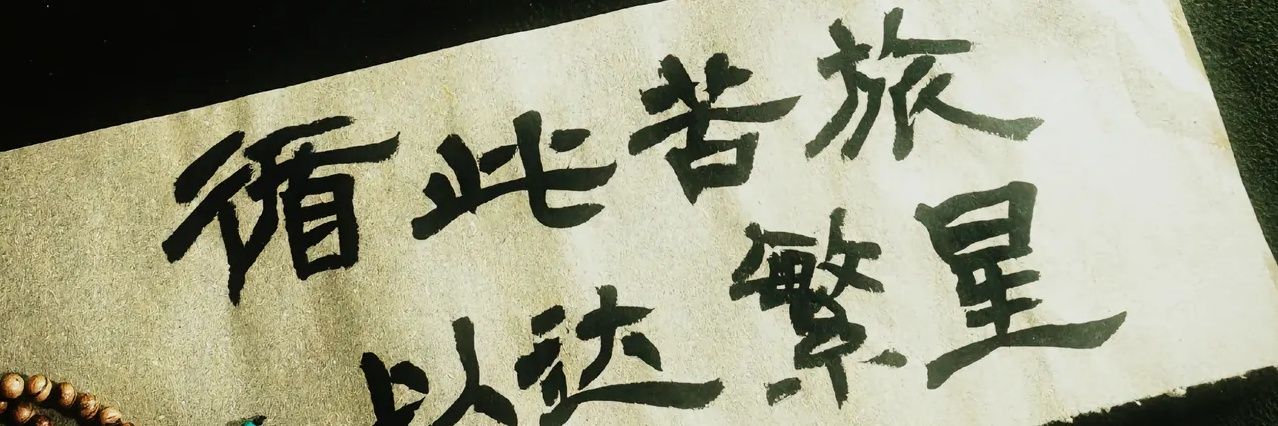 循此苦旅
以达繁星